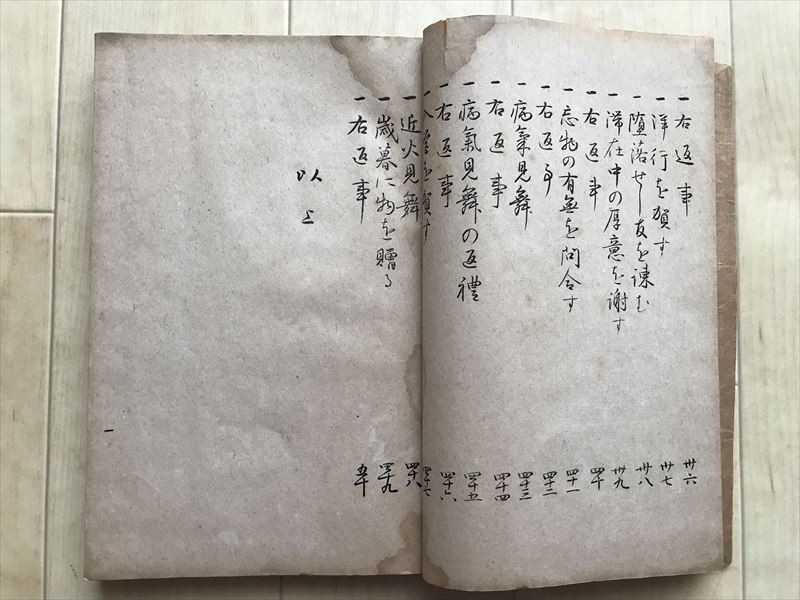 一 右返事 卅六
一 洋行を賀す 卅七
一 堕落せし友を諌む 卅八
一 滞在中の厚意を謝す 卅九
一 右返事 四十
一 忘物の有無を問合す 四十一
一 右返事 四十二
一 病氣見舞 四十三
一 右返事 四十四
一 病氣見舞の返禮 四十五
一 右返事 四十六
一 入営を賀す 四十七
一 近火見舞 四十八
一 歳暮に物を贈る 四十九
一 右返事 五十
以上
一